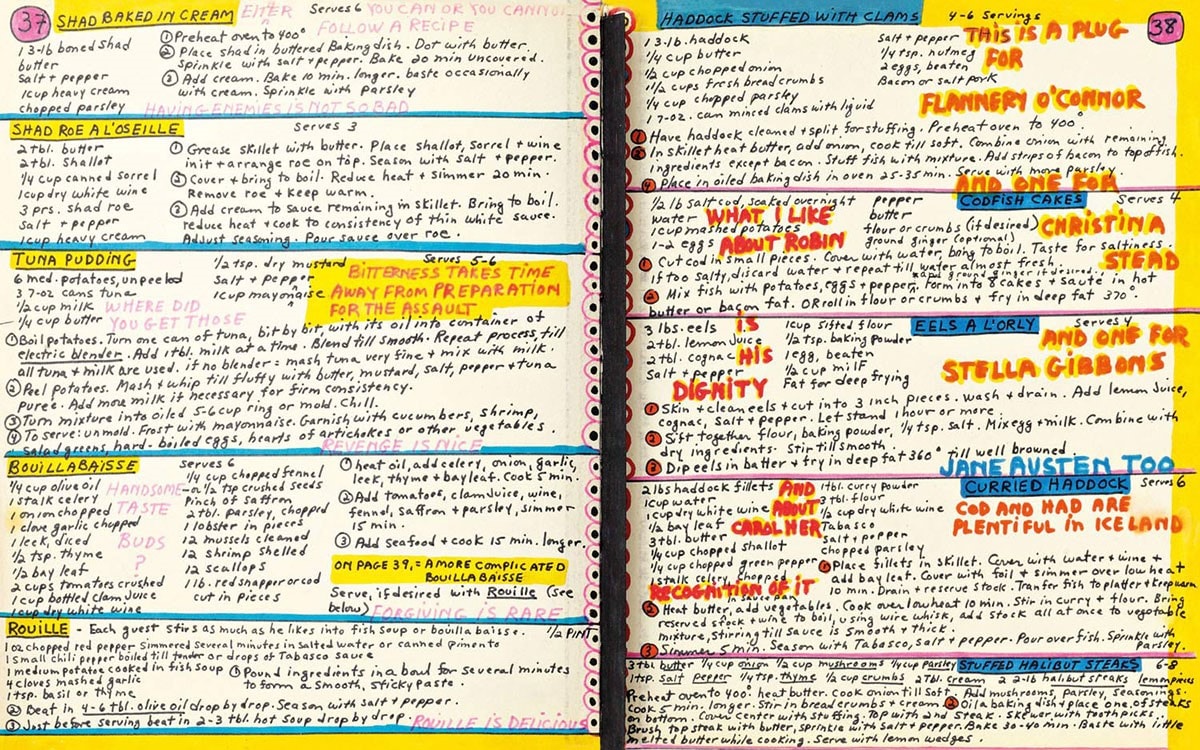 37
SHAD BAKED IN CREAM EITHER Serves 6 YOU CAN OR YOU CANNOT
FOLLOW A RECIPE
1 3-lb boned shad
butter
Salt + pepper
1 cup heavy cream
chopped parsley
① Preheat oven to 400°
② Place shad in buttered Baking dish. Dot with butter.
Sprinkle with salt + pepper. Bake 20 min uncovered.
③ Add cream. Bake 10 min. longer. baste occasionally
with cream. Sprinkle with parsley
HAVING ENEMIES IS NOT SO BAD
SHAD ROE A L'OSEILLE Serves 3
2 tbl. butter
2 tbl. Shallot
1/4 cup canned sorrel
1 cup dry white wine
3 prs. shad roe
salt + pepper
1 cup heavy cream
① Grease skillet with butter. Place shallot, sorrel + wine
in it + arrange roe on top. Season with salt + pepper.
② Cover + bring to boil. Reduce heat + simmer 20 min.
Remove roe + Keep warm.
③ Add cream to sauce remaining in skillet. Bring to boil.
reduce heat + cook to consistency of thin white sauce.
Adjust seasoning. Pour sauce over roe.
TUNA PUDDING Serves 5-6
6 med. potatoes, unpeeled
3 7-oz cans tuna
1/2 cup milk
1/4 cup butter
WHERE DID
YOU GET THOSE
1/2 tsp. dry mustard
Salt + pepper
1 cup mayonnaise
BITTERNESS TAKES TIME
AWAY FROM PREPARATION
FOR THE ASSAULT
① Boil potatoes. Turn one can of tuna, bit by bit, with its oil into container of
electric blender. Add 1 tbl. milk at a time. Blend till smooth. Repeat process, till
all tuna + milk are used. if no blender = mash tuna very fine + mix with milk.
② Peel potatoes. Mash + whip till fluffy with butter, mustard, salt, pepper + tuna
purée. Add more milk if necessary for firm consistency.
③ Turn mixture into oiled 5-6 cup ring or mold. Chill.
④ To serve: unmold. Frost with mayonnaise. Garnish with cucumbers, shrimp,
salad greens, hard-boiled eggs, hearts of artichokes or other vegetables.
REVENGE IS NICE
BOUILLABAISSE Serves 6
1/4 cup olive oil
1 stalk celery
1 onion chopped
1 clove garlic chopped
1 leek, diced
1/2 tsp. thyme
1/2 bay leaf
2 cups tomatoes crushed
1 cup bottled clam Juice
1 cup dry white wine
HANDSOME
TASTE
BUDS
?
1/4 cup chopped fennel
or 1/2 tsp crushed seeds
Pinch of Saffron
2 tbl. parsley, chopped
1 lobster in pieces
12 mussels cleaned
12 shrimp shelled
12 scallops
1 lb. red snapper or cod
cut in pieces
① heat oil, add celery, onion, garlic,
leek, thyme + bay leaf. Cook 5 min.
② Add tomatoes, clam Juice, wine,
fennel, saffron + parsley, simmer
15 min.
③ Add seafood + cook 15 min. longer.
ON PAGE 39, = A MORE COMPLICATED
BOUILLABAISSE
Serve, if desired with Rouille (see
below)
FORGIVING IS RARE
ROUILLE - Each guest stirs as much as he likes into fish soup or bouillabaisse. 1/2 PINT
1 oz chopped red pepper Simmered Several minutes in salted water or canned pimento
1 small chili pepper boiled till tender or drops of Tabasco sauce
1 medium potatoe cooked in fish soup
4 cloves mashed garlic
1 tsp. basil or thyme
① Pound ingredients in a bowl for several minutes
to form a smooth, sticky paste.
② Beat in 4-6 tbl. olive oil drop by drop. Season with salt + pepper.
③ Just before serving beat in 2-3 tbl. hot soup drop by drop.
ROUILLE IS DELICIOUS
38
HADDOCK STUFFED WITH CLAMS 4-6 Servings
1 3-lb. haddock
1/4 cup butter
1/2 cup chopped onion
1 1/2 cups fresh bread crumbs
1/4 cup chopped parsley
1 7-oz. can minced clams with liquid
salt + pepper
1/4 tsp. nutmeg
2 eggs, beaten
Bacon or salt pork
THIS IS A PLUG
FOR
FLANNERY O'CONNOR
① Have haddock cleaned + split for stuffing. Preheat oven to 400°
② In skillet heat butter, add onion, cook till soft. Combine onion with remaining
ingredients except bacon. Stuff fish with mixture. Add strips of bacon to top of fish.
④ Place in oiled baking dish in oven 25-35 min. Serve with more parsley.
AND ONE FOR
CODFISH CAKES Serves 4
1/2 lb salt cod, soaked overnight
water
1 cup mashed potatoes
1-2 eggs
WHAT I LIKE
ABOUT ROBIN
pepper
butter
flour or crumbs (if desired)
ground ginger (optional)
CHRISTINA
STEAD
① Cut cod in small pieces. Cover with water, bring to boil. Taste for saltiness.
if too salty, discard water + repeat till water almost fresh.
add ground ginger if desired.
② Mix fish with potatoes, eggs + pepper. Form into 8 cakes + Sauté in hot
butter or bacon fat. OR roll in flour or crumbs + fry in deep fat 370°.
EELS A L'ORLY Serves 4
3 lbs. eels
2 tbl. lemon Juice
2 tbl. cognac
Salt + pepper
IS
HIS
DIGNITY
1 cup sifted flour
1/2 tsp. baking powder
1 egg, beaten
1/2 cup milk
Fat for deep frying
AND ONE FOR
STELLA GIBBONS
① Skin + clean eels + cut into 3 inch pieces. wash + drain. Add lemon Juice,
cognac, Salt + pepper. Let stand 1 hour or more
② Sift together flour, baking powder, 1/4 tsp. salt. Mix egg + milk. Combine with
dry ingredients. Stir till smooth.
③ Dip eels in batter + fry in deep fat 360° till well browned
JANE AUSTEN TOO
CURRIED HADDOCK Serves 6
2 lbs haddock fillets
1 cup water
1 cup dry white wine
1/2 bay leaf
3 tbl. butter
1/4 cup chopped shallot
1/4 cup chopped green pepper
1 stalk celery, chopped
AND
ABOUT
CAROL HER
RECOGNITION OF IT
1 tbl. curry powder
3 tbl. flour
1/2 cup dry white wine
Tabasco
Salt + pepper
chopped parsley
COD AND HAD ARE
PLENTIFUL IN ICELAND
① Place fillets in skillet. Cover with water + wine +
add bay leaf. Cover with foil + simmer over low heat
10 min. Drain + reserve stock. Tranfer fish to platter + keep warm
② Heat butter, add vegetables. Cook over low heat 10 min. Stir in curry + flour. Bring
reserved stock + wine to boil, using wire whisk, add stock all at once to vegetable
mixture, stirring till sauce is smooth + thick.
③ Simmer 5 min. Season with Tabasco, salt + pepper. Pour over fish. Sprinkle with
parsley.
3 tbl butter 1/4 cup onion 1/2 cup mushrooms 1/4 cup Parsley STUFFED HALIBUT STEAKS 6-8
1 tsp. Salt pepper 1/4 tsp. thyme 1/2 cup crumbs 2 tbl. cream 2 2-lb halibut steaks lemon pieces
Preheat oven to 400°. heat butter. Cook onion till soft. Add mushrooms, parsley, seasonings.
Cook 5 min. longer. Stir in bread crumbs + cream. ② Oil a baking dish + place one of steaks
on bottom. Cover center with stuffing. Top with 2nd Steak. Skewer with tooth picks.
Brush top steak with butter, sprinkle with salt + pepper. Bake 30-40 min. Baste with little
melted butter while cooking. Serve with lemon wedges.